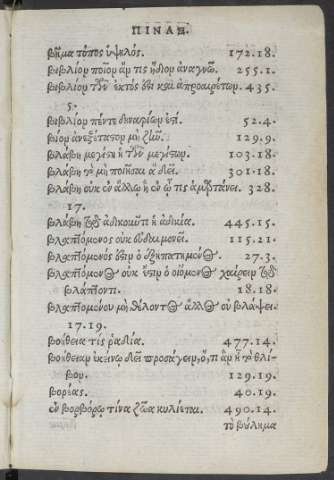 ΠΙΝΑΞ.
βῆμα τόπος ὑψηλός. 172.18.
βιβλίον ποῖον ἄν τις ἥδιον ἀναγνῷ. 255.1.
βιβλίον τῶν ἐκτός ἐστι καὶ ἀπροαιρέτων. 435.
5.
βιβλίον πέντε δηναρίων ἐστί. 52.4.
βίον ἀνεξέταστον μὴ ζῆν. 129.9.
βλάβη μεγίστη ἡ τῶν μεγίστων. 103.18.
βλάβη τὸ μὴ ποιῆσαι ἃ δεῖ. 301.18.
βλάβη οὐκ ἐν ἄλλῳ ἢ ἐν ᾧ τις ἁμαρτάνει. 328.
17.
βλάβη τοῦ ἀδικοῦντι ἡ ἀδικία. 445.15.
βλαπτόμενος οὐκ εὐδαιμονεῖ. 115.21.
27.3.
βλαπτόμενος οὐκ ἔστιν ὁ οἰόμενος χαίρειν τοῦ
βλάπτοντι. 18.18.
βλαπτομένου μὴ θέλοντος ἄλλος οὐ βλάψει.
17.19.
βοήθεια τίς ῥᾳδία. 477.14.
βοήθειαν ἐκείνῳ δεῖ προσάγειν, ὅ, τι ἂν ᾖ τὸ θλί-
βον. 129.19.
βορέας. 40.19.
ἐν βορβόρῳ τίνα ζῶα κυλίεται. 490.14.
τὸ βούλημα